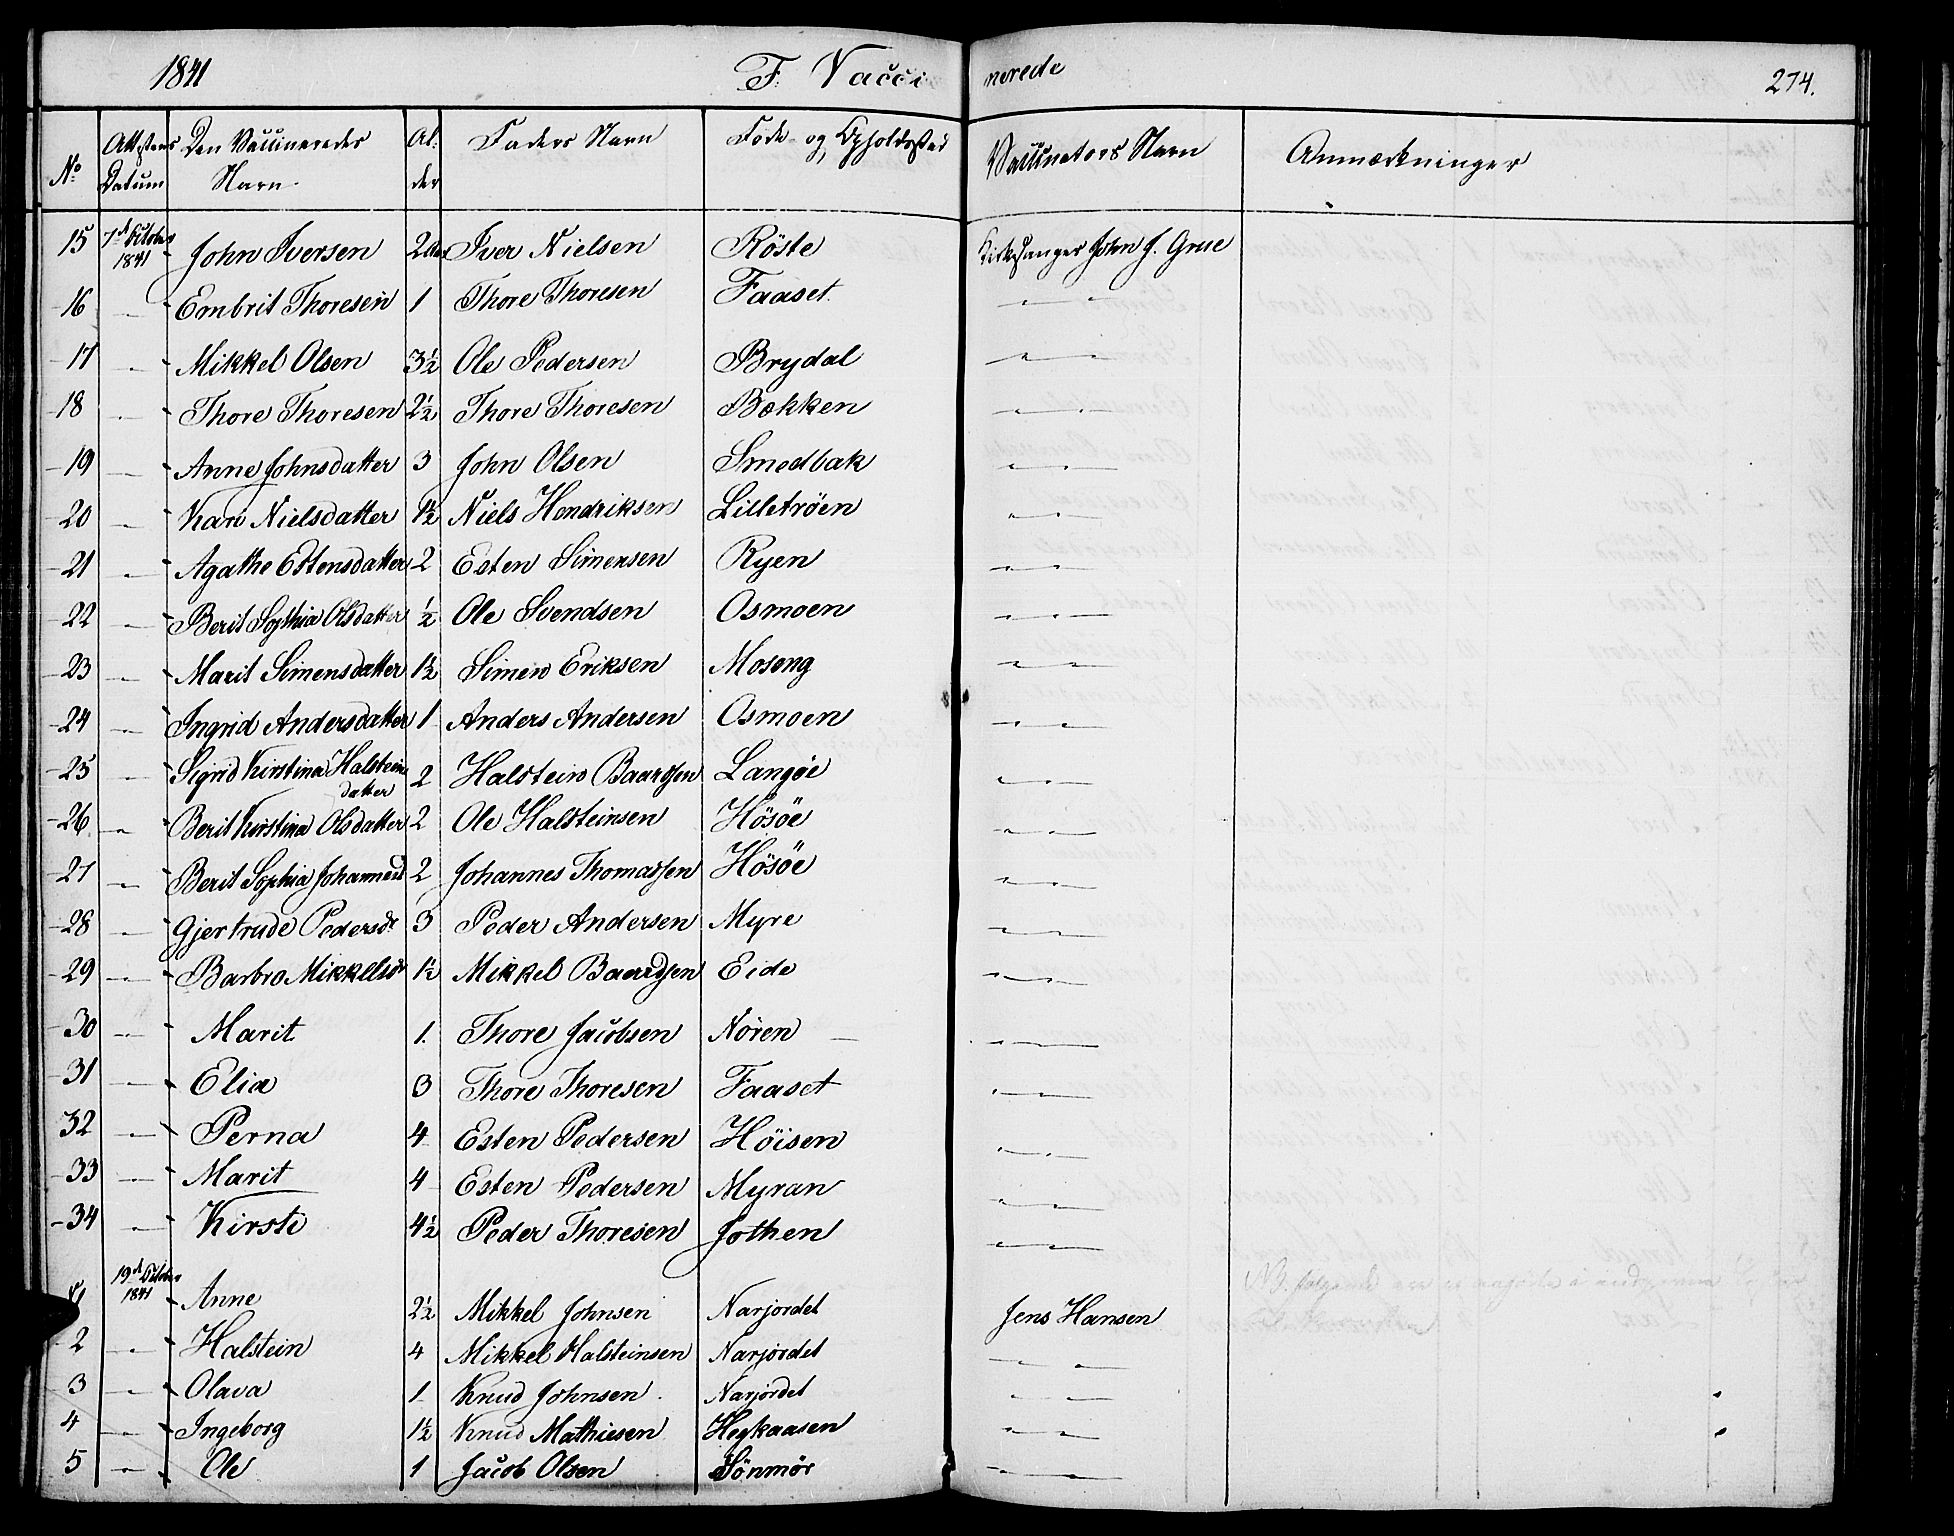 1841 F. Vaccinerede 274.
No Attestens Datum Den Vaccineredes Navn Alder Faders Navn Føde- og Opholdssted Vaccinateurs Navn Anmærkninger
15 7d October 1841 John Iversen 2 Iver Nielsen Röste Kirkesanger John J. Grue
16 — Embrit Thoresen 1 Thore Thoresen Faaset — —
17 — Mikkel Olsen 3½ Ole Pedersen Brydal — —
18 — Thore Thoresen 2½ Thore Thoresen Bækken — —
19 — Anne Johnsdatter 3 John Olsen Smedbak — —
20 — Kari Nielsdatter 1½ Niels Hendriksen Lilletröen — —
21 — Agathe Estensdatter 2 Esten Simensen Ryen — —
22 — Berit Sophia Olsdatter ½ Ole Svendsen Osmoen — —
23 — Marit Simensdatter 1½ Simen Eriksen Moseng — —
24 — Ingrid Andersdatter 1 Anders Andersen Osmoen — —
25 — Sigrid Kirstina Halstein
datter 2 Halstein Baardsen Langöe — —
26 — Berit Kirstina Olsdatter 2 Ole Halsteinsen Hösöe — —
27 — Berit Sophia Johannesd 2 Johannes Thomassen Hösöe — —
28 — Gjertrude Pedersdr 3 Peder Andersen Myre — —
29 — Barbro Mikkelsdr 1½ Mikkel Baardsen Eide — —
30 — Marit 1. Thore Jacobsen Nören — —
31 — Elia 3 Thore Thoresen Faaset — —
32 — Perna 4 Esten Pedersen Höisen — —
33 — Marit 4 Esten Pedersen Myran — —
34 — Kirsti 4½ Peder Thoresen Jothen — —
1 19d October 1841 Anne 2½ Mikkel Johnsen Narjordet Jens Hansen
2 — Halstein 4 Mikkel Halsteinsen Narjordet — —
3 — Olava 1 Knud Johnsen Narjordet — —
4 — Ingeborg 1½ Knud Mathiesen Hegkaasen — —
5 — Ole 1 Jacob Olsen Sönmör — —